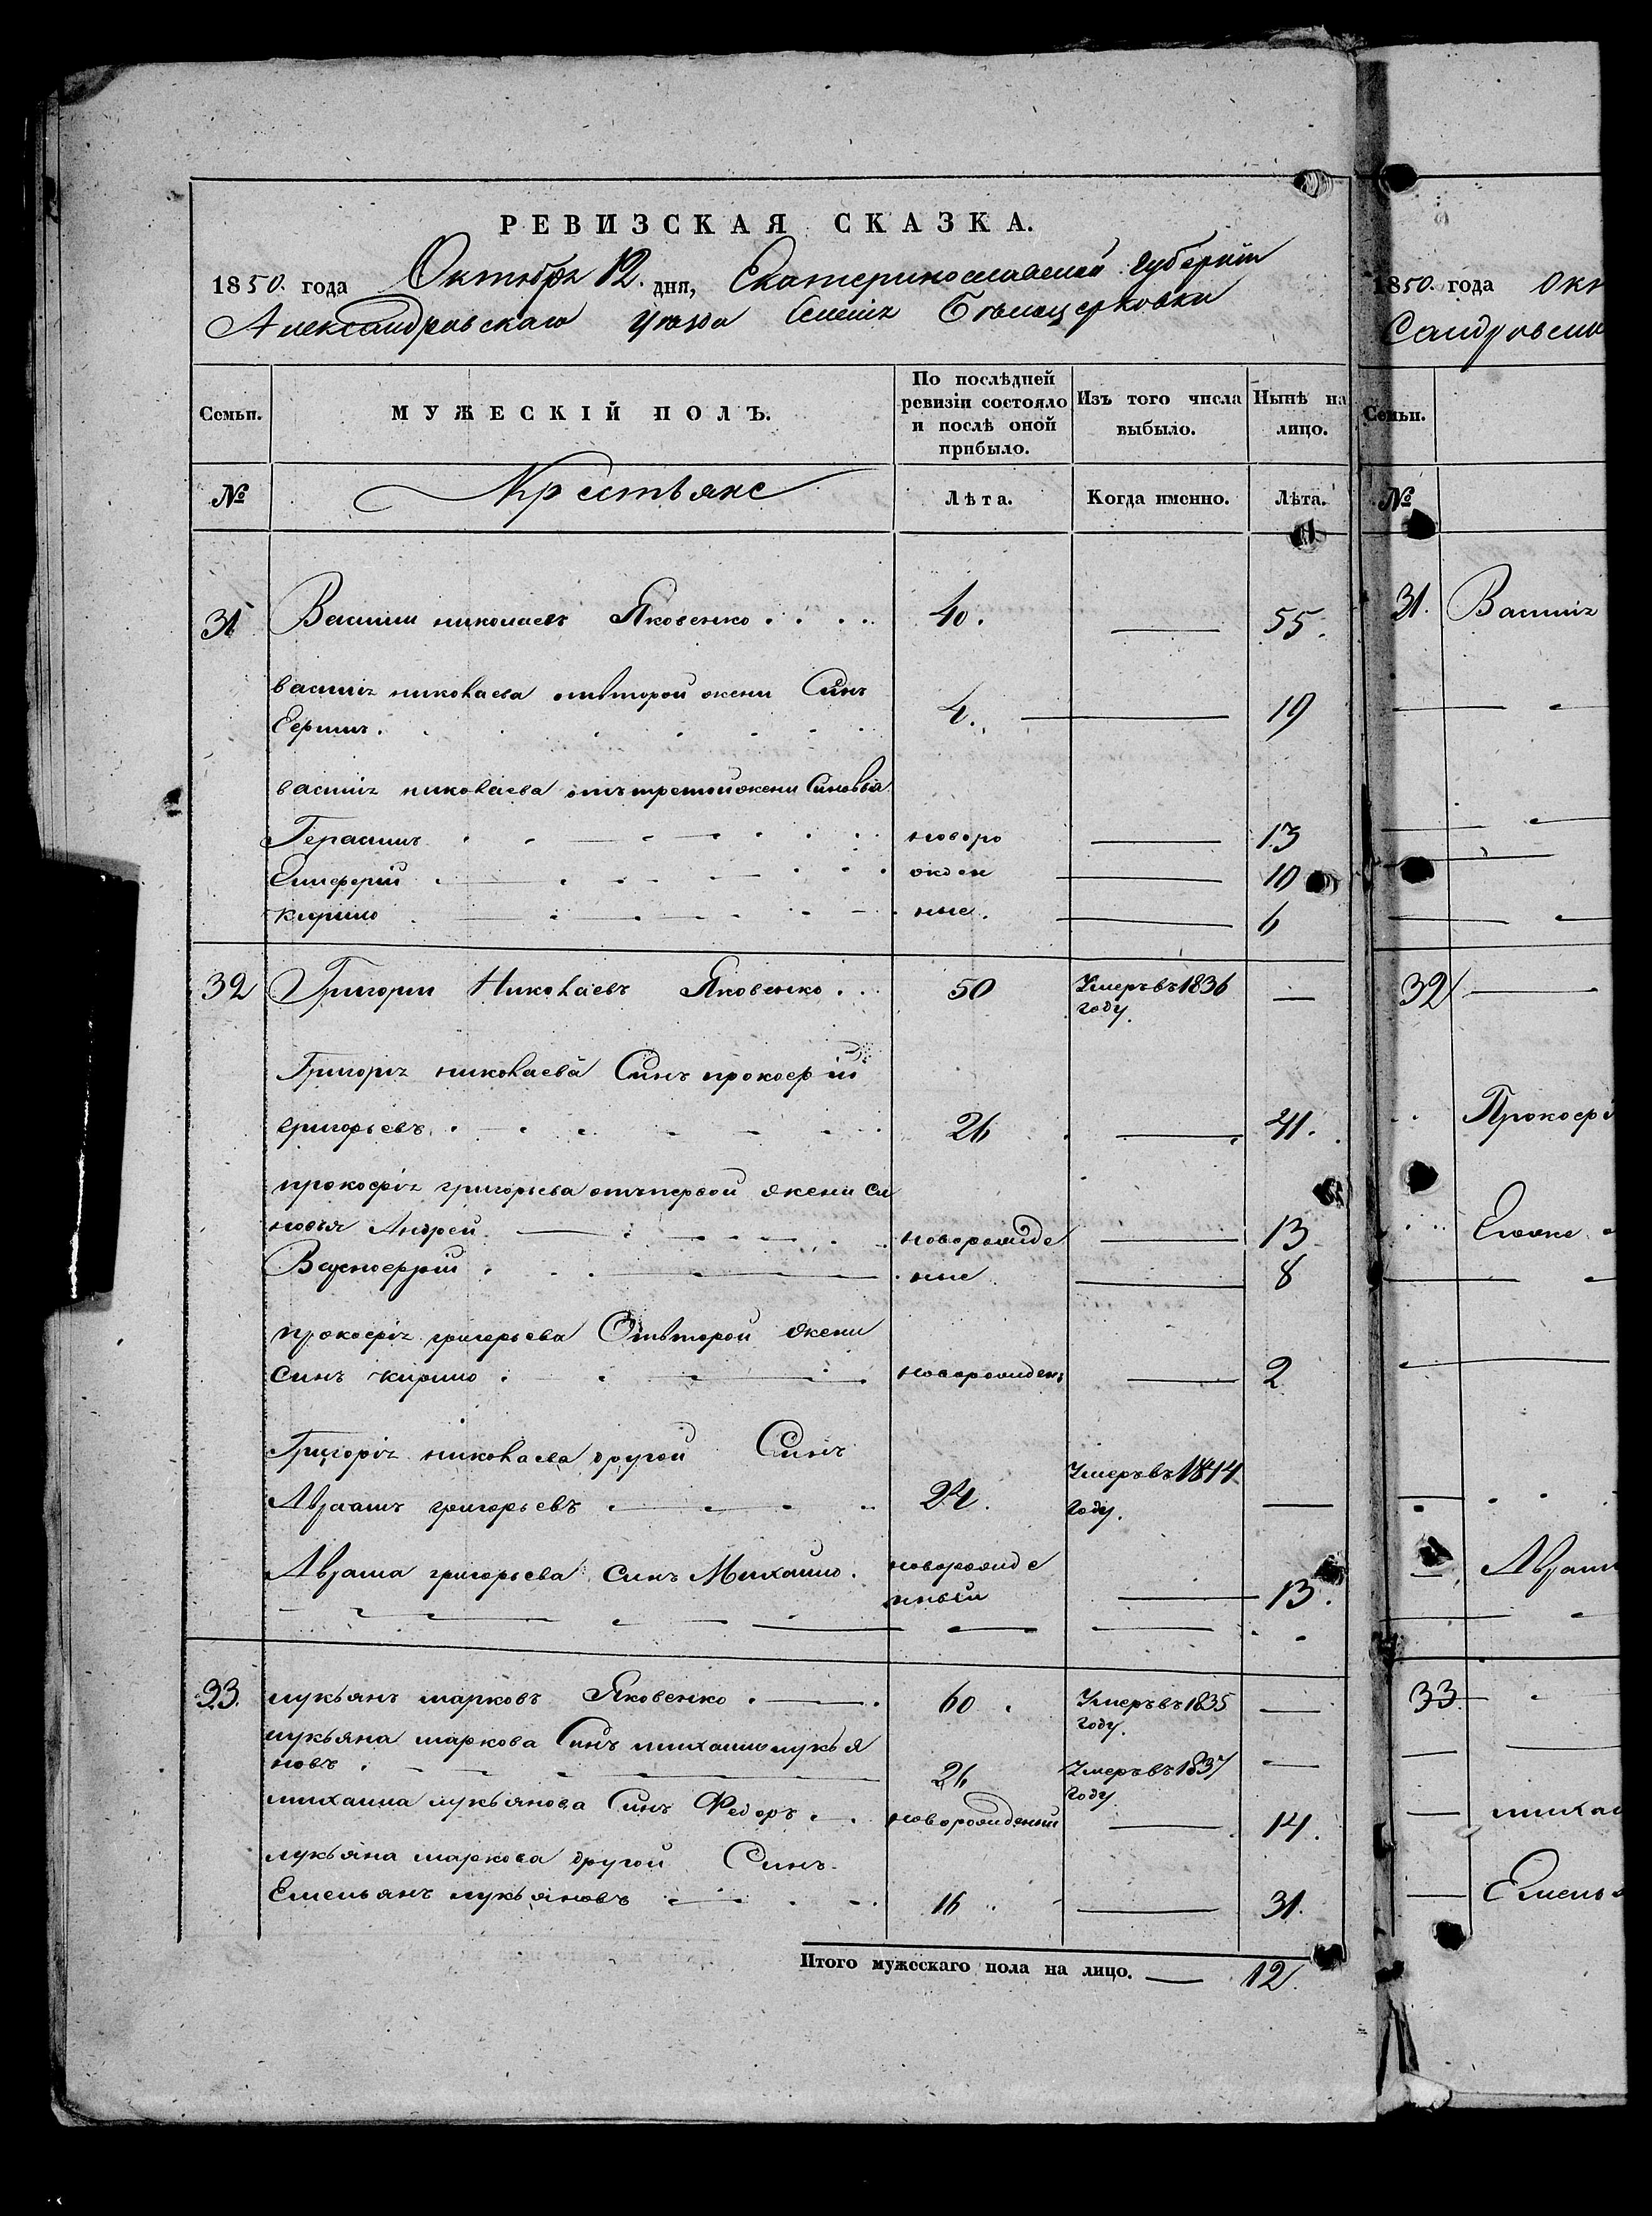 РЕВИЗСКАЯ СКАЗКА.
1850. года Октября 12. дня, Екатеринославской губернии
Александровскаго уезда Бѣлоцерковки
Семьи. МУЖЕСКІЙ ПОЛЪ. По послѣдней ревизіи состояло и послѣ оной прибыло. Изъ того числа выбыло. Нынѣ на лицо.
№ Крестьяне Лѣта. Когда именно. Лѣта.
31 Василии николаевъ Яковенко 40. — 55.
василія николаева отвторой жени Синъ
4. — 19
василія николаева отътретой жени Синовья
Герасимъ новоро — 13
Елиферій жден — 10
кирило ные. — 6
32 Григории Николаевъ Яковенко 50 Умеръ въ 1836 году. —
Григорія николаева Синъ прокофій
григорьевъ 26 — 41.
прокофія григорьева отъпервой жени си
новья Андрей новорожде — 13
ные — 8
прокофія григорьева Отвторой жени
синъ кирило новорожденъ — 2
Григорія николаева другой Синъ
Авраамъ григорьевъ 24. Умеръ въ 1844 году. —
Аврама григорьева синъ Михаило. новорожде
нный — 13.
33. лукьянъ марковъ Яковенко 60 Умеръ въ 1835 году. —
лукьяна маркова Синъ михаило лукья
новъ 26 Умеръ въ 1837 году —
михаила лукьянова Синъ Федоръ новорожденый — 14.
лукьяна маркова другой Синъ
Емельянъ лукьяновъ 16 — 31.
Итого мужескаго пола на лицо. — 12.
1850. года Окт
Сандровск
Семьи.
№
31. Василія
32
Прокофі
Аврам
33
михаи
Емелья